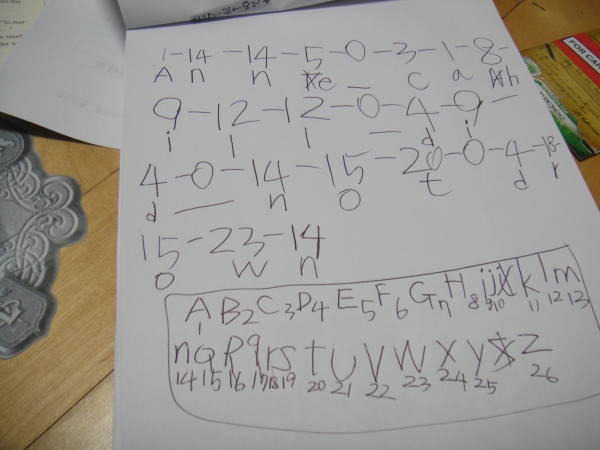 1-14-14-5-0-3-1-8-
A n n e _ C a h
9-12-12-0-4-9-
i l l _ d i
4-0-14-15-20-0-4-18-
d _ n o t d r
15-23-14
o w n
A B C D E F G H i j k l m
1 2 3 4 5 6 7 8 9 10 11 12 13
n o p q r s t u v w x y z
14 15 16 17 18 19 20 21 22 23 24 25 26
FOR CAR